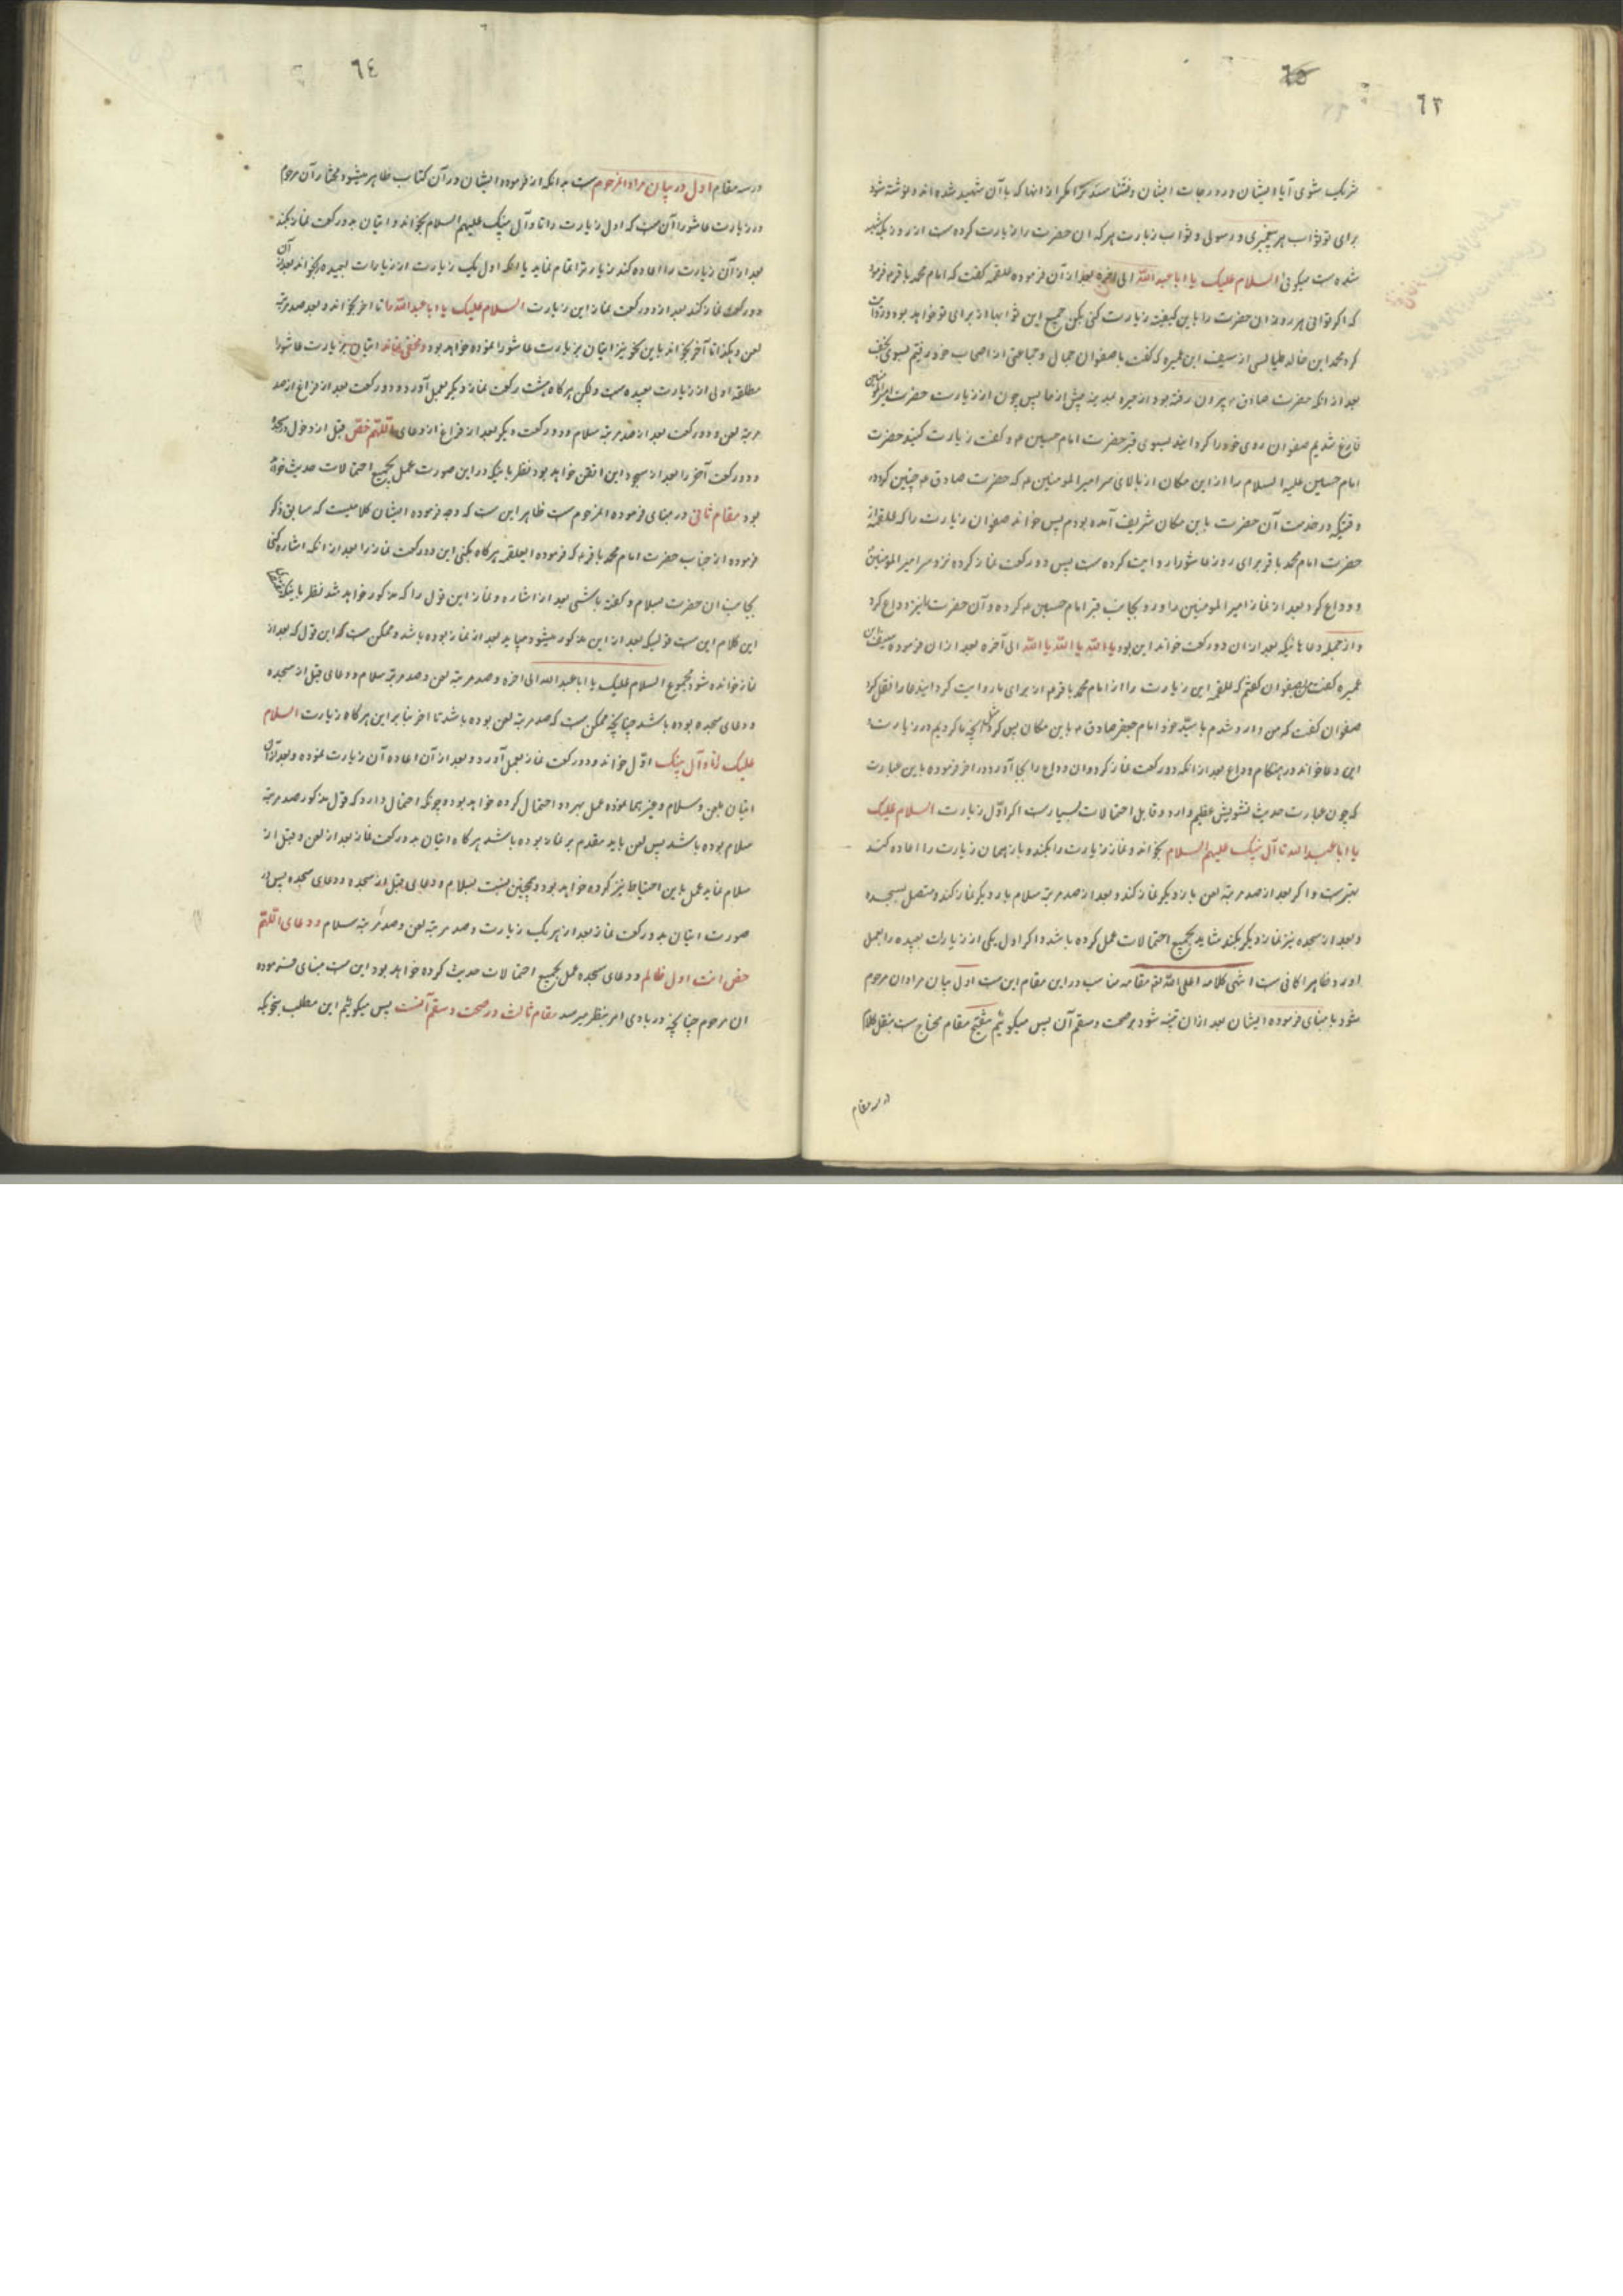 ٦٣
٦٥
شریک شوی آیا ایشان در درجات ایشان و نشناسند ترا مگر از آنها که با آن شهید شده‌اند و نوشته شود
برای تو ثواب هر پیغمبری و رسولی و ثواب زیارت هر که آن حضرت را زیارت کرده است از روزیکه شهید
شده است میگوئی السلام علیک یا ابا عبد الله الی آخره بعد از آن فرموده علقمه گفت که امام محمد باقر ع فرمود
که اگر توانی هر روز آن حضرت را باین کیفیت زیارت کنی بکن جمیع این ثوابها از برای تو خواهد بود و روایت
کرد محمد ابن خالد طیالسی از سیف ابن عمیره که گفت با صفوان جمال و جماعتی از اصحاب خود رفتیم بسوی نجف
بعد از آنکه حضرت صادق ع بیرون رفته بود از حیره بمدینه پیش از ما پس چون از زیارت حضرت امیر المؤمنین
فارغ شدیم صفوان روی خود را گردانید بسوی قبر حضرت امام حسین ع و گفت زیارت کنید حضرت
امام حسین علیه السلام را از این مکان از بالای سر امیر المومنین ع که حضرت صادق ع چنین کرد
وقتیکه در خدمت آن حضرت باین مکان شریف آمده بودم پس خواند صفوان زیارت را که علقمه از
حضرت امام محمد باقر برای روز عاشورا روایت کرده است پس دو رکعت نماز کرده نزد سر امیر المومنین
و وداع کرد بعد از نماز امیر المومنین را و رو بجانب قبر امام حسین ع کرده و آن حضرت را نیز وداع کرد
و از جمله دعاهائیکه بعد از آن دو رکعت خواند این بود یا الله یا الله یا الله الی آخره بعد از آن فرموده سیف ابن
عمیره گفت من بصفوان گفتم که علقمه این زیارت را از امام محمد باقر ع از برای ما روایت کرد این دعا را نقل نکرد
صفوان گفت که من وارد شدم با سید خود امام جعفر صادق ع باین مکان پس کرد مثل آنچه ما کردیم در زیارت و
این دعا خواند در هنگام وداع بعد از آنکه دو رکعت نماز کرد و آن وداع را بجا آورد در آخر فرموده باین عبارت
که چون عبارت حدیث تشویش عظیم دارد و قابل احتمالات بسیار است اگر اول زیارت السلام علیک
یا ابا عبد الله تا آل نبیک علیهم السلام بخواند و نماز زیارت را بکند و باز همان زیارت را اعاده کند
بهتر است و اگر بعد از صد مرتبه لعن بار دیگر نماز کند و بعد از صد مرتبه سلام بار دیگر نماز کند و متصل بسجده
و بعد از سجده نیز نماز دیگر بکند شاید بجمیع احتمالات عمل کرده باشد و اگر اول یکی از زیارات بعیده را بعمل
آورد ظاهرا کافی است انتهی کلامه اعلی الله مقامه مناسب در این مقام این است اول بیان مراد آن مرحوم
شود با مبنای فرموده ایشان بعد از آن تنبیه شود بر صحت و سقم آن پس میگوئیم تنقیح مقام محتاج است بنقل کلام
در سه مقام
٦٤
در سه مقام اول در بیان مراد آنمرحوم است بدانکه از فرموده ایشان در آن کتاب ظاهر میشود مختار آن مرحوم
در زیارت عاشورا آن است که اول زیارت را تا و آل نبیک علیهم السلام بخواند و اتیان بدو رکعت نماز بکند
بعد از آن زیارت را اعاده کند زیارترا تمام نماید یا آنکه اول یک زیارت از زیارات بعیده را بخواند بعد از آن
دو رکعت نماز کند بعد از دو رکعت نماز این زیارت السلام علیک یا ابا عبد الله را تا آخر بخواند و بعد صد مرتبه
لعن و هکذا تا آخر بخواند باین نحو نیز اتیان بزیارت عاشورا نموده خواهد بود و مخفی نماند اتیان بزیارت عاشورا
مطلقا اولی از زیارت بعیده است و لکن هر گاه هشت رکعت نماز دیگر بعمل آورد دو رکعت بعد از فراغ از صد
مرتبه لعن و دو رکعت بعد از صد مرتبه سلام و دو رکعت دیگر بعد از فراغ از دعای اللهم خص قبل از دخول در سجده
و دو رکعت آخر را بعد از سجود این اتقن خواهد بود نظر باینکه در این صورت عمل بجمیع احتمالات حدیث خواهد
بود مقام ثانی در مبنای فرموده آنمرحوم است ظاهر این است که وجه فرموده ایشان کلامیست که سابق ذکر
فرموده از جناب حضرت امام محمد باقر ع که فرموده ای علقمه هر گاه بکنی این دو رکعت نماز را بعد از آنکه اشاره کنی
بجانب آن حضرت بسلام و گفته باشی بعد از اشاره و نماز این قول را که مذکور خواهد شد نظر باینکه
این کلام این است قولیکه بعد از این مذکور میشود میباید بعد از نماز بوده باشد و ممکن است که این قول که بعد از
نماز خوانده شود مجموع السلام علیک یا ابا عبد الله الی آخره و صد مرتبه لعن و صد مرتبه سلام و دعای قبل از سجده
و دعای سجده بوده باشد چنانچه ممکن است که صد مرتبه لعن بوده باشد تا آخر بنا بر این هر گاه زیارت السلام
علیک را تا و آل نبیک اول خواند و دو رکعت نماز بعمل آورد و بعد از آن اعاده آن زیارت نموده و بعد از آن
اتیان بلعن و سلام و غیرهما نموده عمل بهر دو احتمال کرده خواهد بود و چونکه احتمال دارد که قول مذکور صد مرتبه
سلام بوده باشد پس لعن باید مقدم بر نماز بوده باشد هر گاه اتیان بدو رکعت نماز بعد از لعن و قبل از
سلام نماید عمل باین احتیاط نیز کرده خواهد بود و همچنین نسبت بسلام و دعای قبل از سجده و دعای سجده پس در
صورت اتیان بدو رکعت نماز بعد از هر یک زیارت و صد مرتبه لعن و صد مرتبه سلام و دعای اللهم
خص انت اول ظالم و دعای سجده عمل بجمیع احتمالات حدیث کرده خواهد بود این است مبنای فرموده
آن مرحوم چنانچه در بادی امر بنظر میرسد مقام ثالث در صحت و سقم آنست پس میگوئیم این مطلب بنحویکه